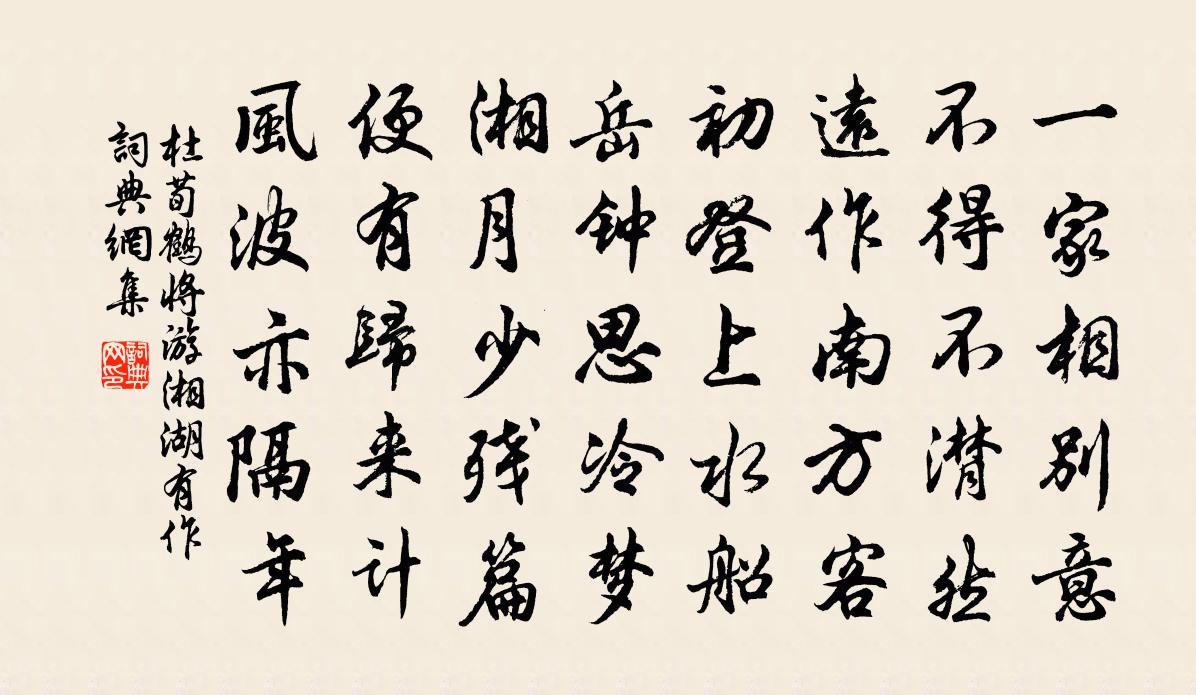 一家相别意
不得不潸然
遠作南方客
初登上水船
岳钟思冷梦
湘月少残篇
便有歸来计
風波亦隔年
杜荀鶴将游湘湖有作
詞典網集
詞典網印